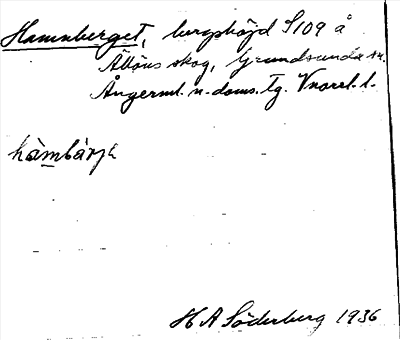 Hamnberget, bergshöjd S109 å
skog, Grundsunda sn.
Ångerml. n. doms. tg. Vnorrl. l.
hàmbàrjə
H A Söderberg 1936